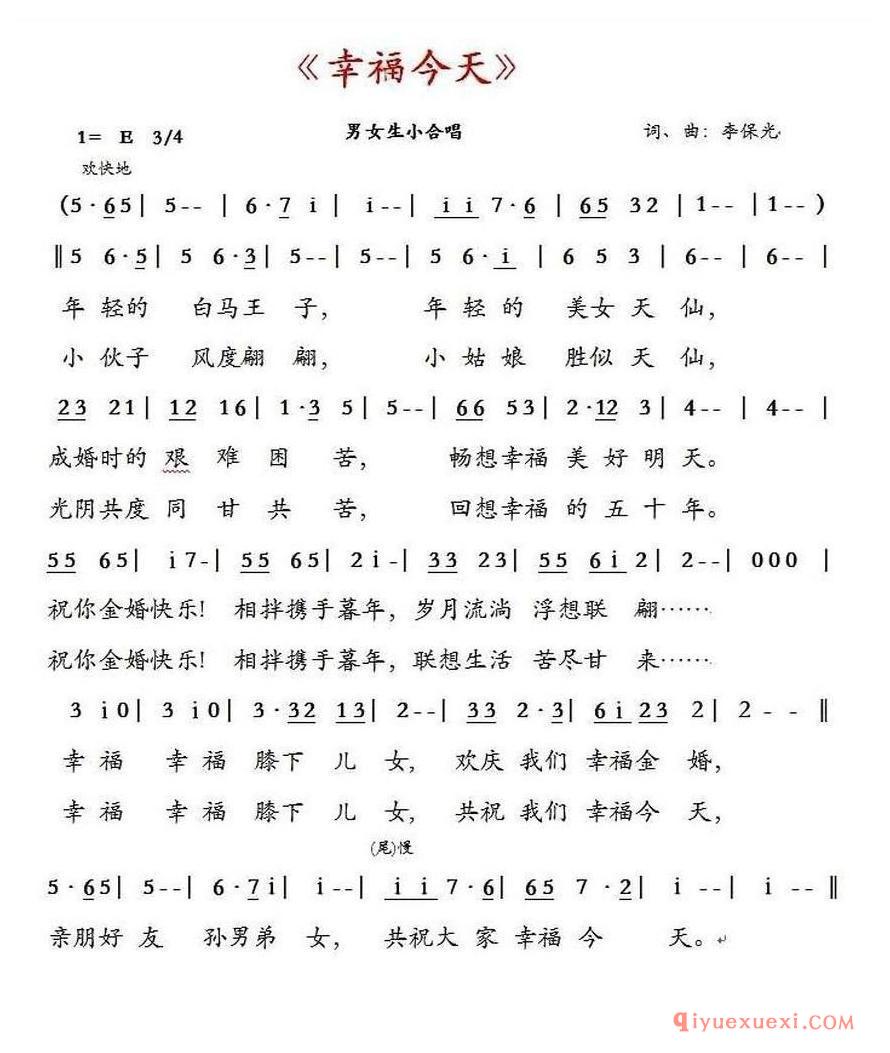 《幸福今天》
1= E 3/4 男女生小合唱 词、曲：李保光
欢快地
(5·65| 5--| 6·7 i| i--| i i 7·6| 65 32| 1--|1--)
‖5 6·5| 5 6·3| 5--| 5--| 5 6·i | 6 5 3| 6--| 6--|
年轻的 白马王子， 年轻的 美女天仙，
小伙子 风度翩翩， 小姑娘 胜似天仙，
23 21| 12 16| 1·3 5| 5--| 66 53| 2·12 3| 4--| 4--|
成婚时的艰难困苦， 畅想幸福美好明天。
光阴共度同甘共苦， 回想幸福的五十年。
55 65| i7-| 55 65| 2i-| 33 23| 55 6i 2| 2--| 000 |
祝你金婚快乐！ 相拌携手暮年，岁月流淌 浮想联翩……
祝你金婚快乐！ 相拌携手暮年，联想生活 苦尽甘来……
3 i0| 3 i0| 3·32 13| 2--| 33 2·3| 6i 23 2| 2 - - ‖
幸福 幸福膝下儿女， 欢庆我们幸福金婚，
幸福 幸福膝下儿女， 共祝我们幸福今天，
(尾)慢
5·65| 5--| 6·7i| i--| i i 7·6| 65 7·2| i --| i --‖
亲朋好友 孙男弟女， 共祝大家幸福今天。
qiyuexuexi.com